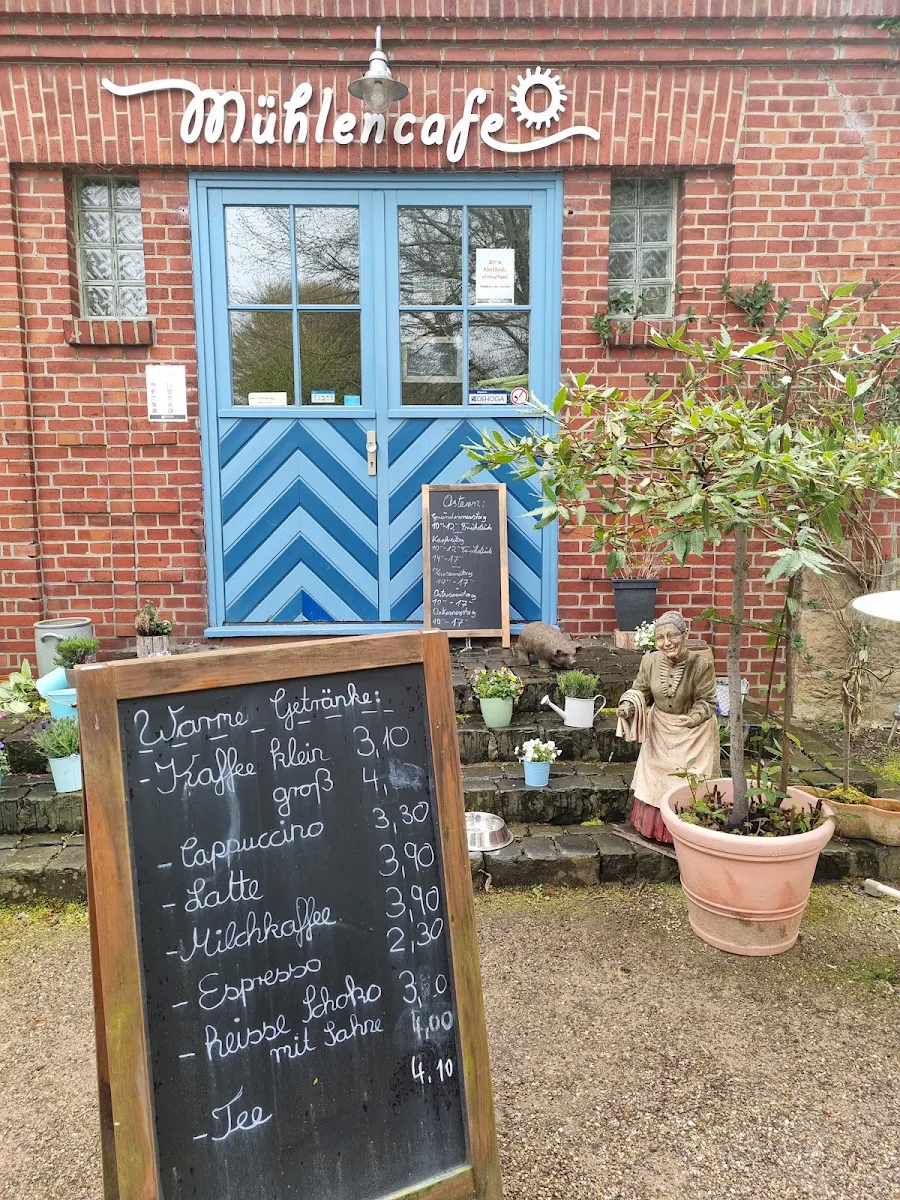 Mühlencafe
DEHOGA
Ostern:
Gründonnerstag
10-12 Frühstück
Karfreitag
10-12 Frühstück
14-17
14-17
Ostersonntag
10-17
Ostermontag
10-17
Warme Getränke:
- Kaffee klein 3,10
groß 4,
- Cappuccino 3,30
- Latte 3,90
- Milchkaffee 3,90
- Espresso 2,30
- heisse Schoko
mit Sahne 4,00
- Tee 4,10